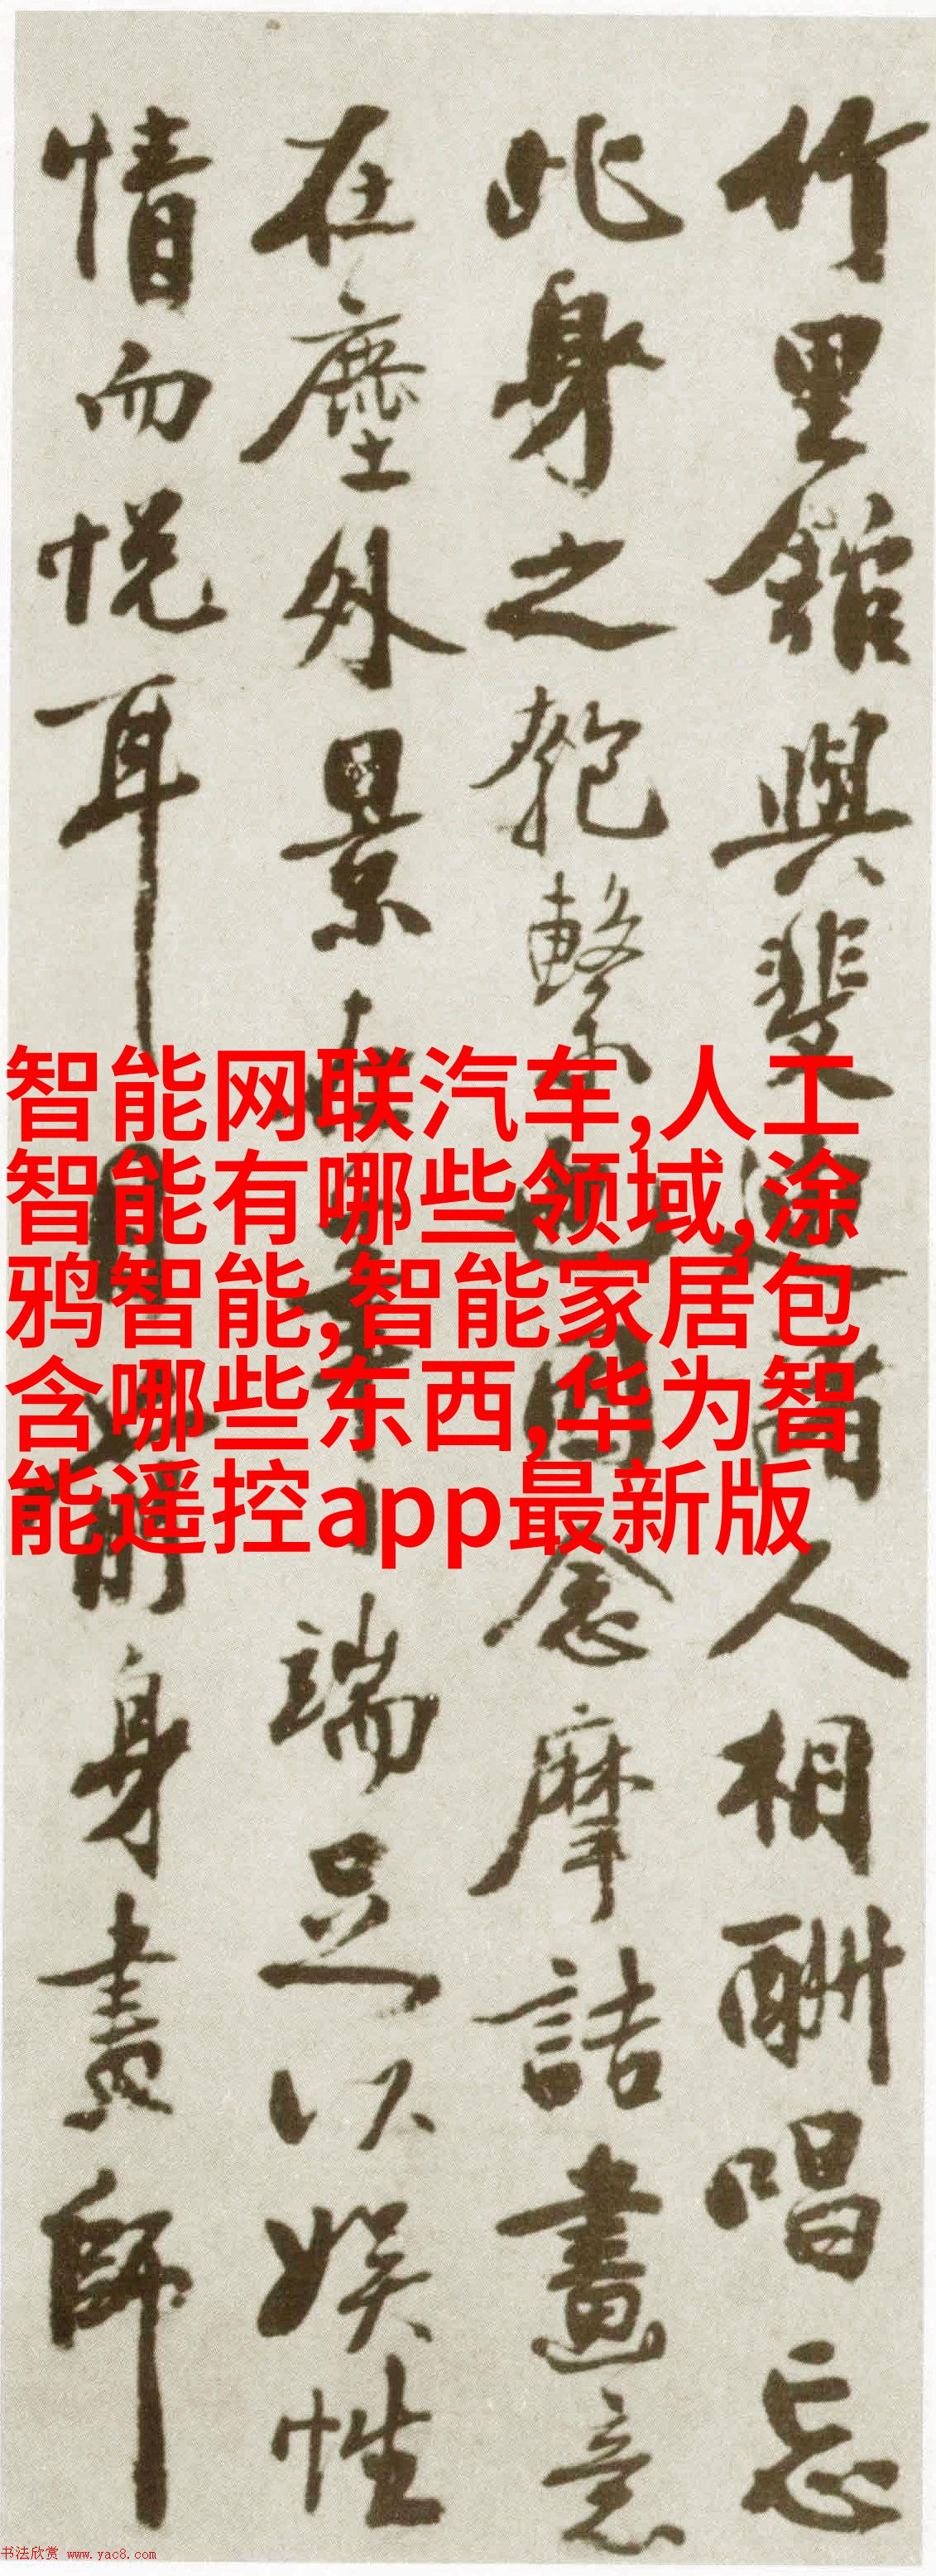 竹里館與斐迪諸人相酬唱忘
此身之匏繫也因念摩詰畫意
在塵外景在筆端足以娛性
情而悅耳目前身畫師
智能网联汽车,人工
智能有哪些领域,涂
鸦智能,智能家居包
含哪些东西,华为智
能遥控app最新版
书法欣赏 www.yac8.com